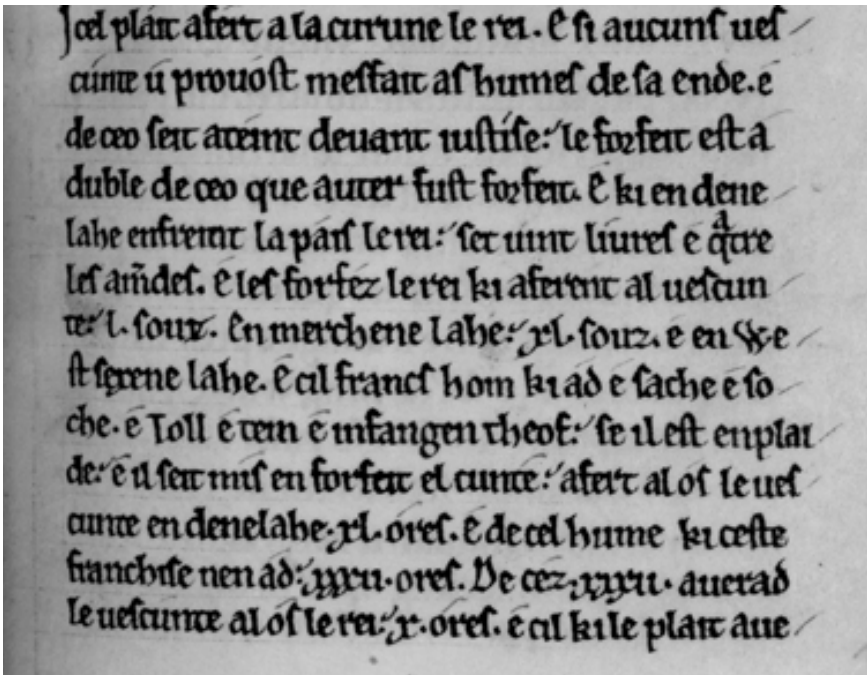 Icel plait afert a la curune le rei. E si aucuns ues
cunte u prouost mesfait as humes de sa ende. e
de ceo seit ateint deuant iustise: le forfeit est a
duble de ceo que auter fust forfeit. E ki en dene
lahe enfreint la pais le rei: set uint liures e qͣtre
les am̄des. E les forfez le rei ki aferent al uescun
te: l. souz. En merchene lahe: xl. souz. e en We
st sexene lahe. E cil francs hom ki ad e sache e so
che. e Toll e tem e infangen theof: se il est enplai
de: e il seit mis en forfeit el cunte: afert al os le ues
cunte en denelahe. xl. ores. E de cel hume ki ceste
franchise nen ad: xxxii. ores. De cez. xxxii. auerad
le uescunte al os le rei: x. ores. e cil ki le plait aue